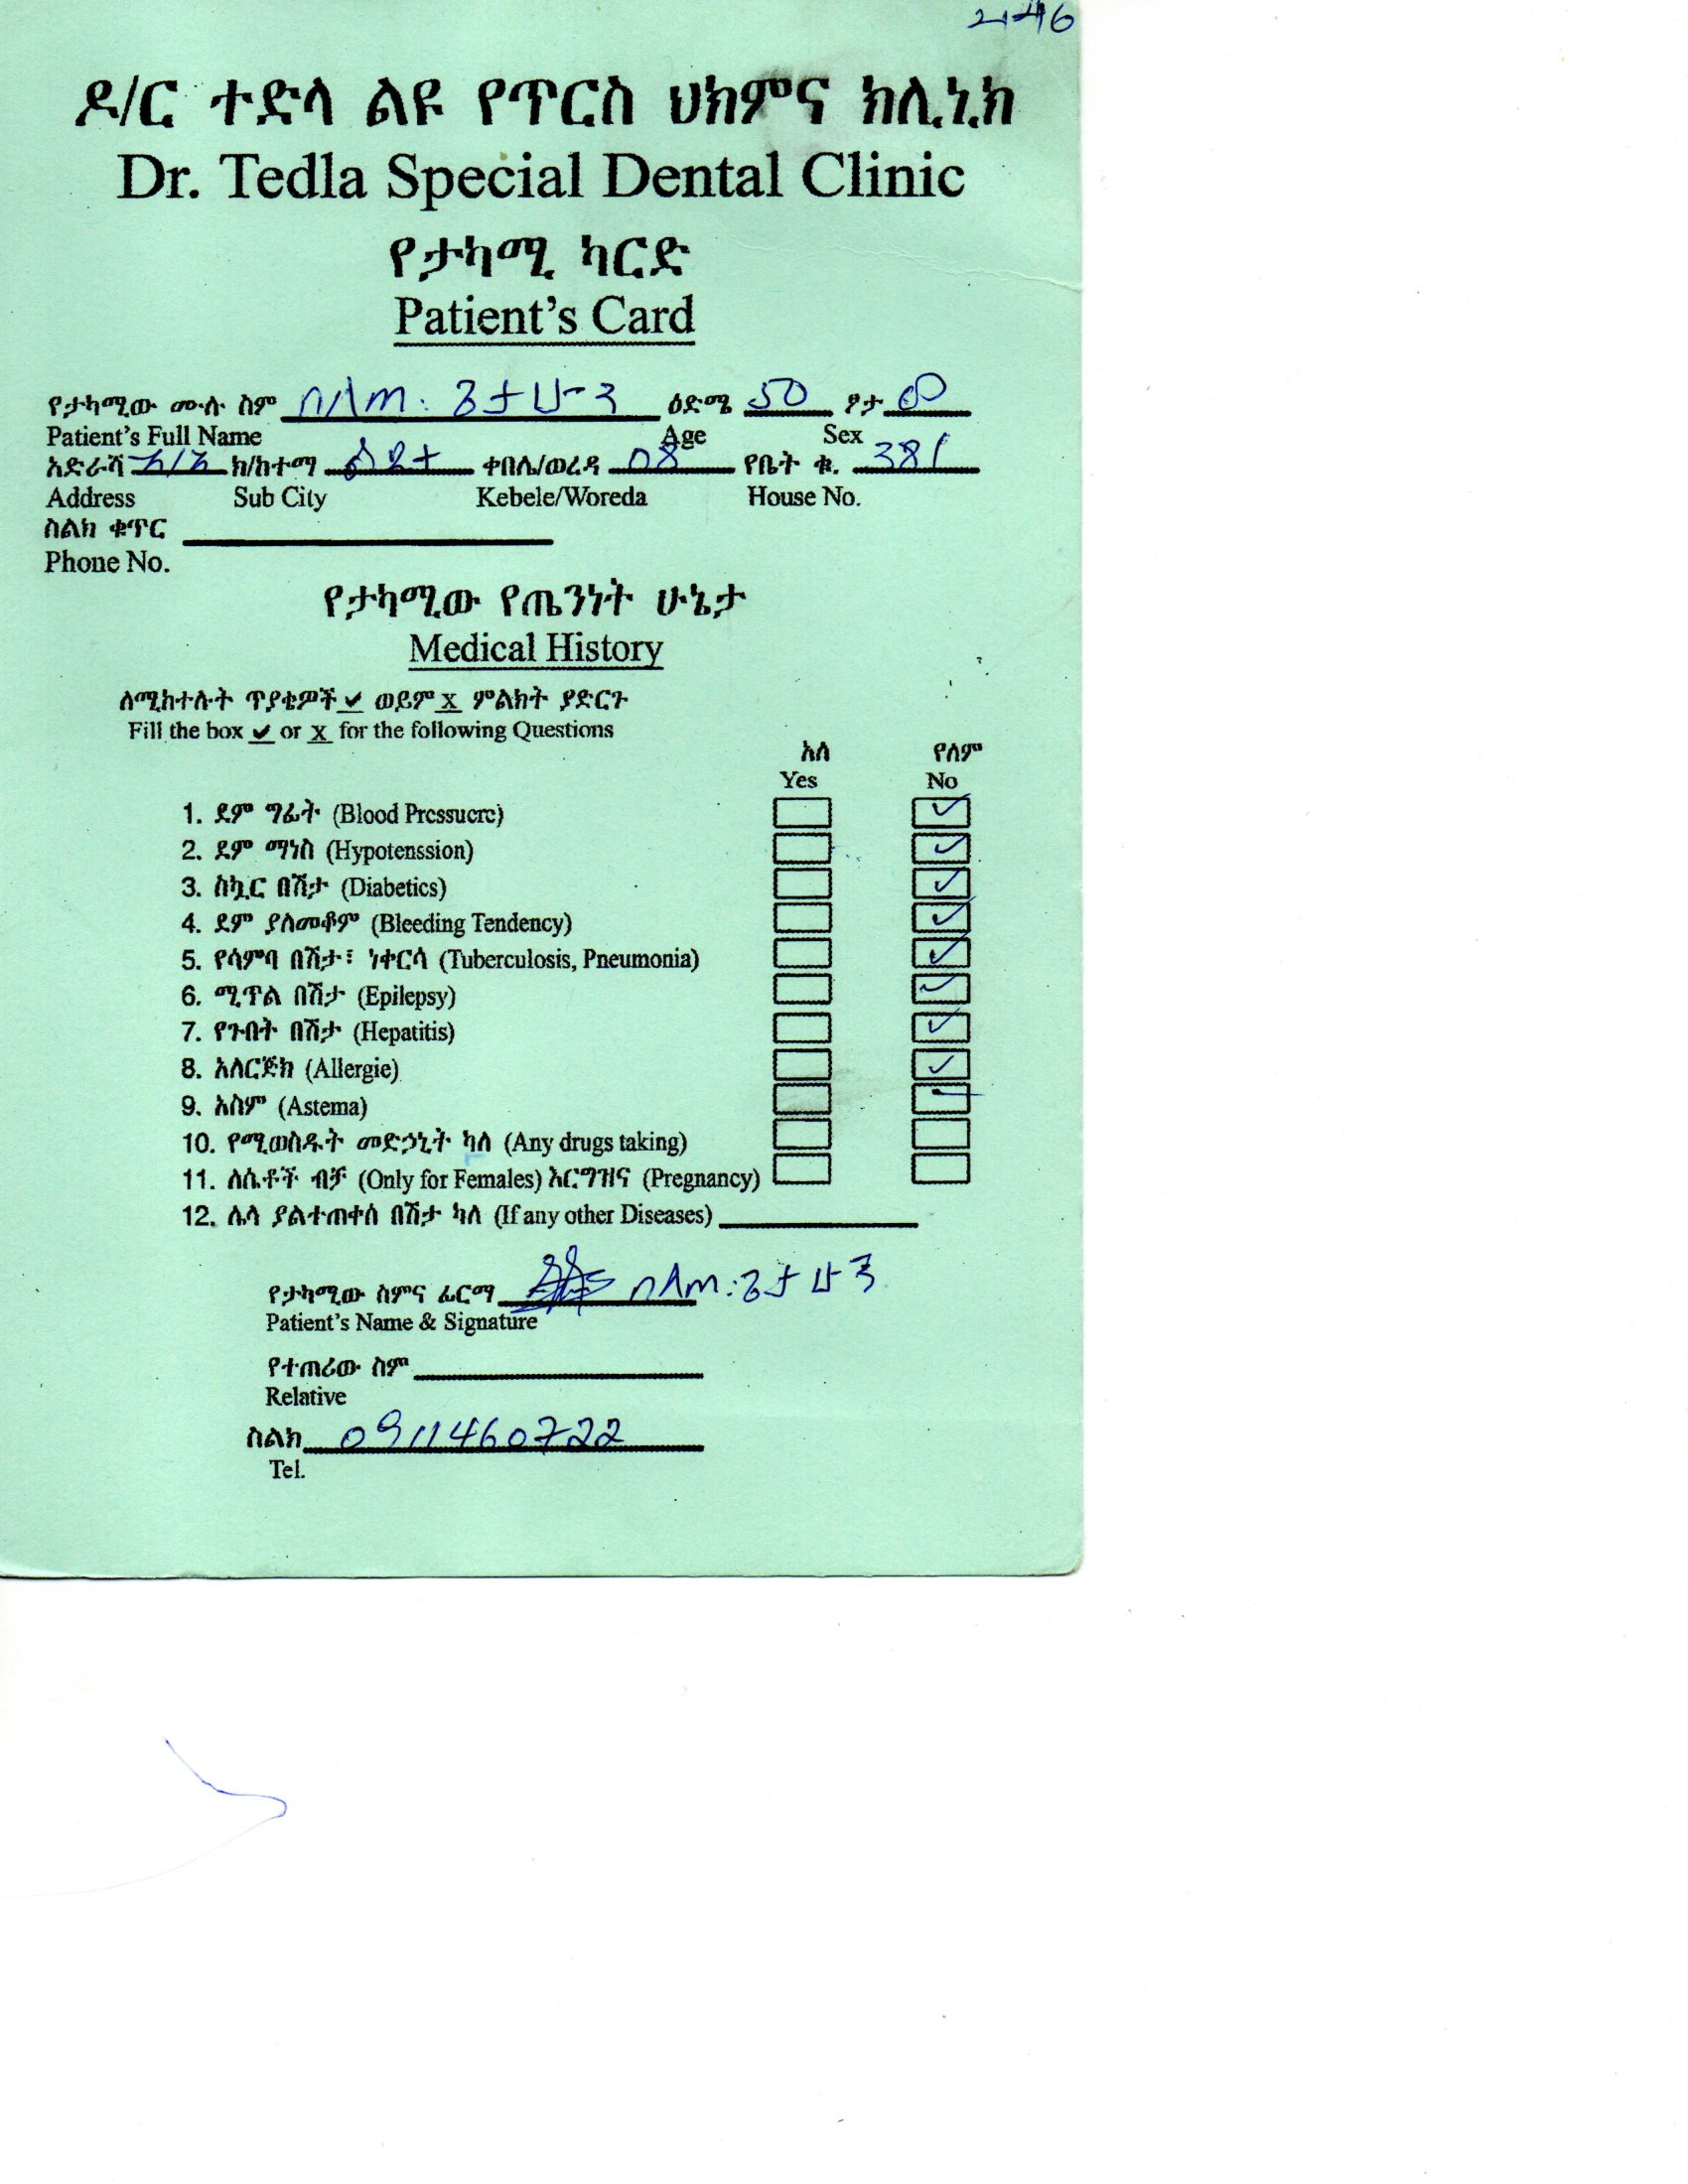 ዶ/ር ተድላ ልዩ የጥርስ ህክምና ክሊኒክ
Dr. Tedla Special Dental Clinic
የታካሚ ካርድ
Patient's Card
የታካሚው ሙሉ ስም በለጠ: ጌታሁን ዕድሜ 50 ፆታ ወ
Patient's Full Name Age Sex
አድራሻ አ/አ ክ/ከተማ ልደታ ቀበሌ/ወረዳ 08 የቤት ቁ. 381
Address Sub City Kebele/Woreda House No.
ስልክ ቁጥር
Phone No.
የታካሚው የጤንነት ሁኔታ
Medical History
ለሚከተሉት ጥያቄዎች ✔ ወይም X ምልክት ያድርጉ
Fill the box ✔ or X for the following Questions
አለ የለም
Yes No
1. ደም ግፊት (Blood Pressucre) ✓
2. ደም ማነስ (Hypotenssion) ✓
3. ስኳር በሽታ (Diabetics) ✓
4. ደም ያለመቆም (Bleeding Tendency) ✓
5. የሳምባ በሽታ፣ ነቀርሳ (Tuberculosis, Pneumonia) ✓
6. ሚጥል በሽታ (Epilepsy) ✓
7. የጉበት በሽታ (Hepatitis) ✓
8. አለርጅክ (Allergie) ✓
9. አስም (Astema)
10. የሚወስዱት መድኃኒት ካለ (Any drugs taking)
11. ለሴቶች ብቻ (Only for Females) እርግዝና (Pregnancy)
12. ሌላ ያልተጠቀሰ በሽታ ካለ (If any other Diseases)
የታካሚው ስምና ፊርማ በለጠ: ጌታሁን
Patient's Name & Signature
የተጠሪው ስም
Relative
ስልክ 0911460722
Tel.